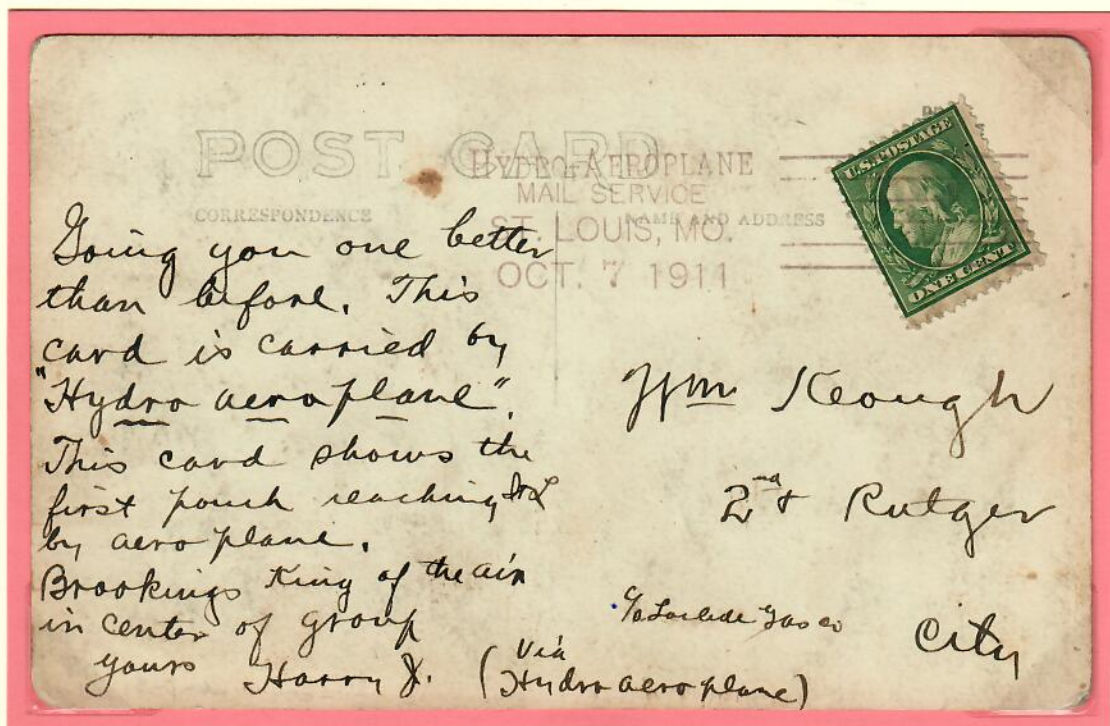 POST CARD
HYDRO-AEROPLANE
MAIL SERVICE
ST. LOUIS, MO.
OCT. 7 1911
CORRESPONDENCE
NAME AND ADDRESS
U.S. POSTAGE
ONE CENT
Going you one better
than before. This
card is carried by
"Hydro aeroplane".
This card shows the
first pouch reaching St L
by aeroplane.
Brookings King of the air
in center of group
yours Harry J.
(Via
Hydro aeroplane)
Wm Keough
2nd & Rutger
c/o Laclede Gas Co
City